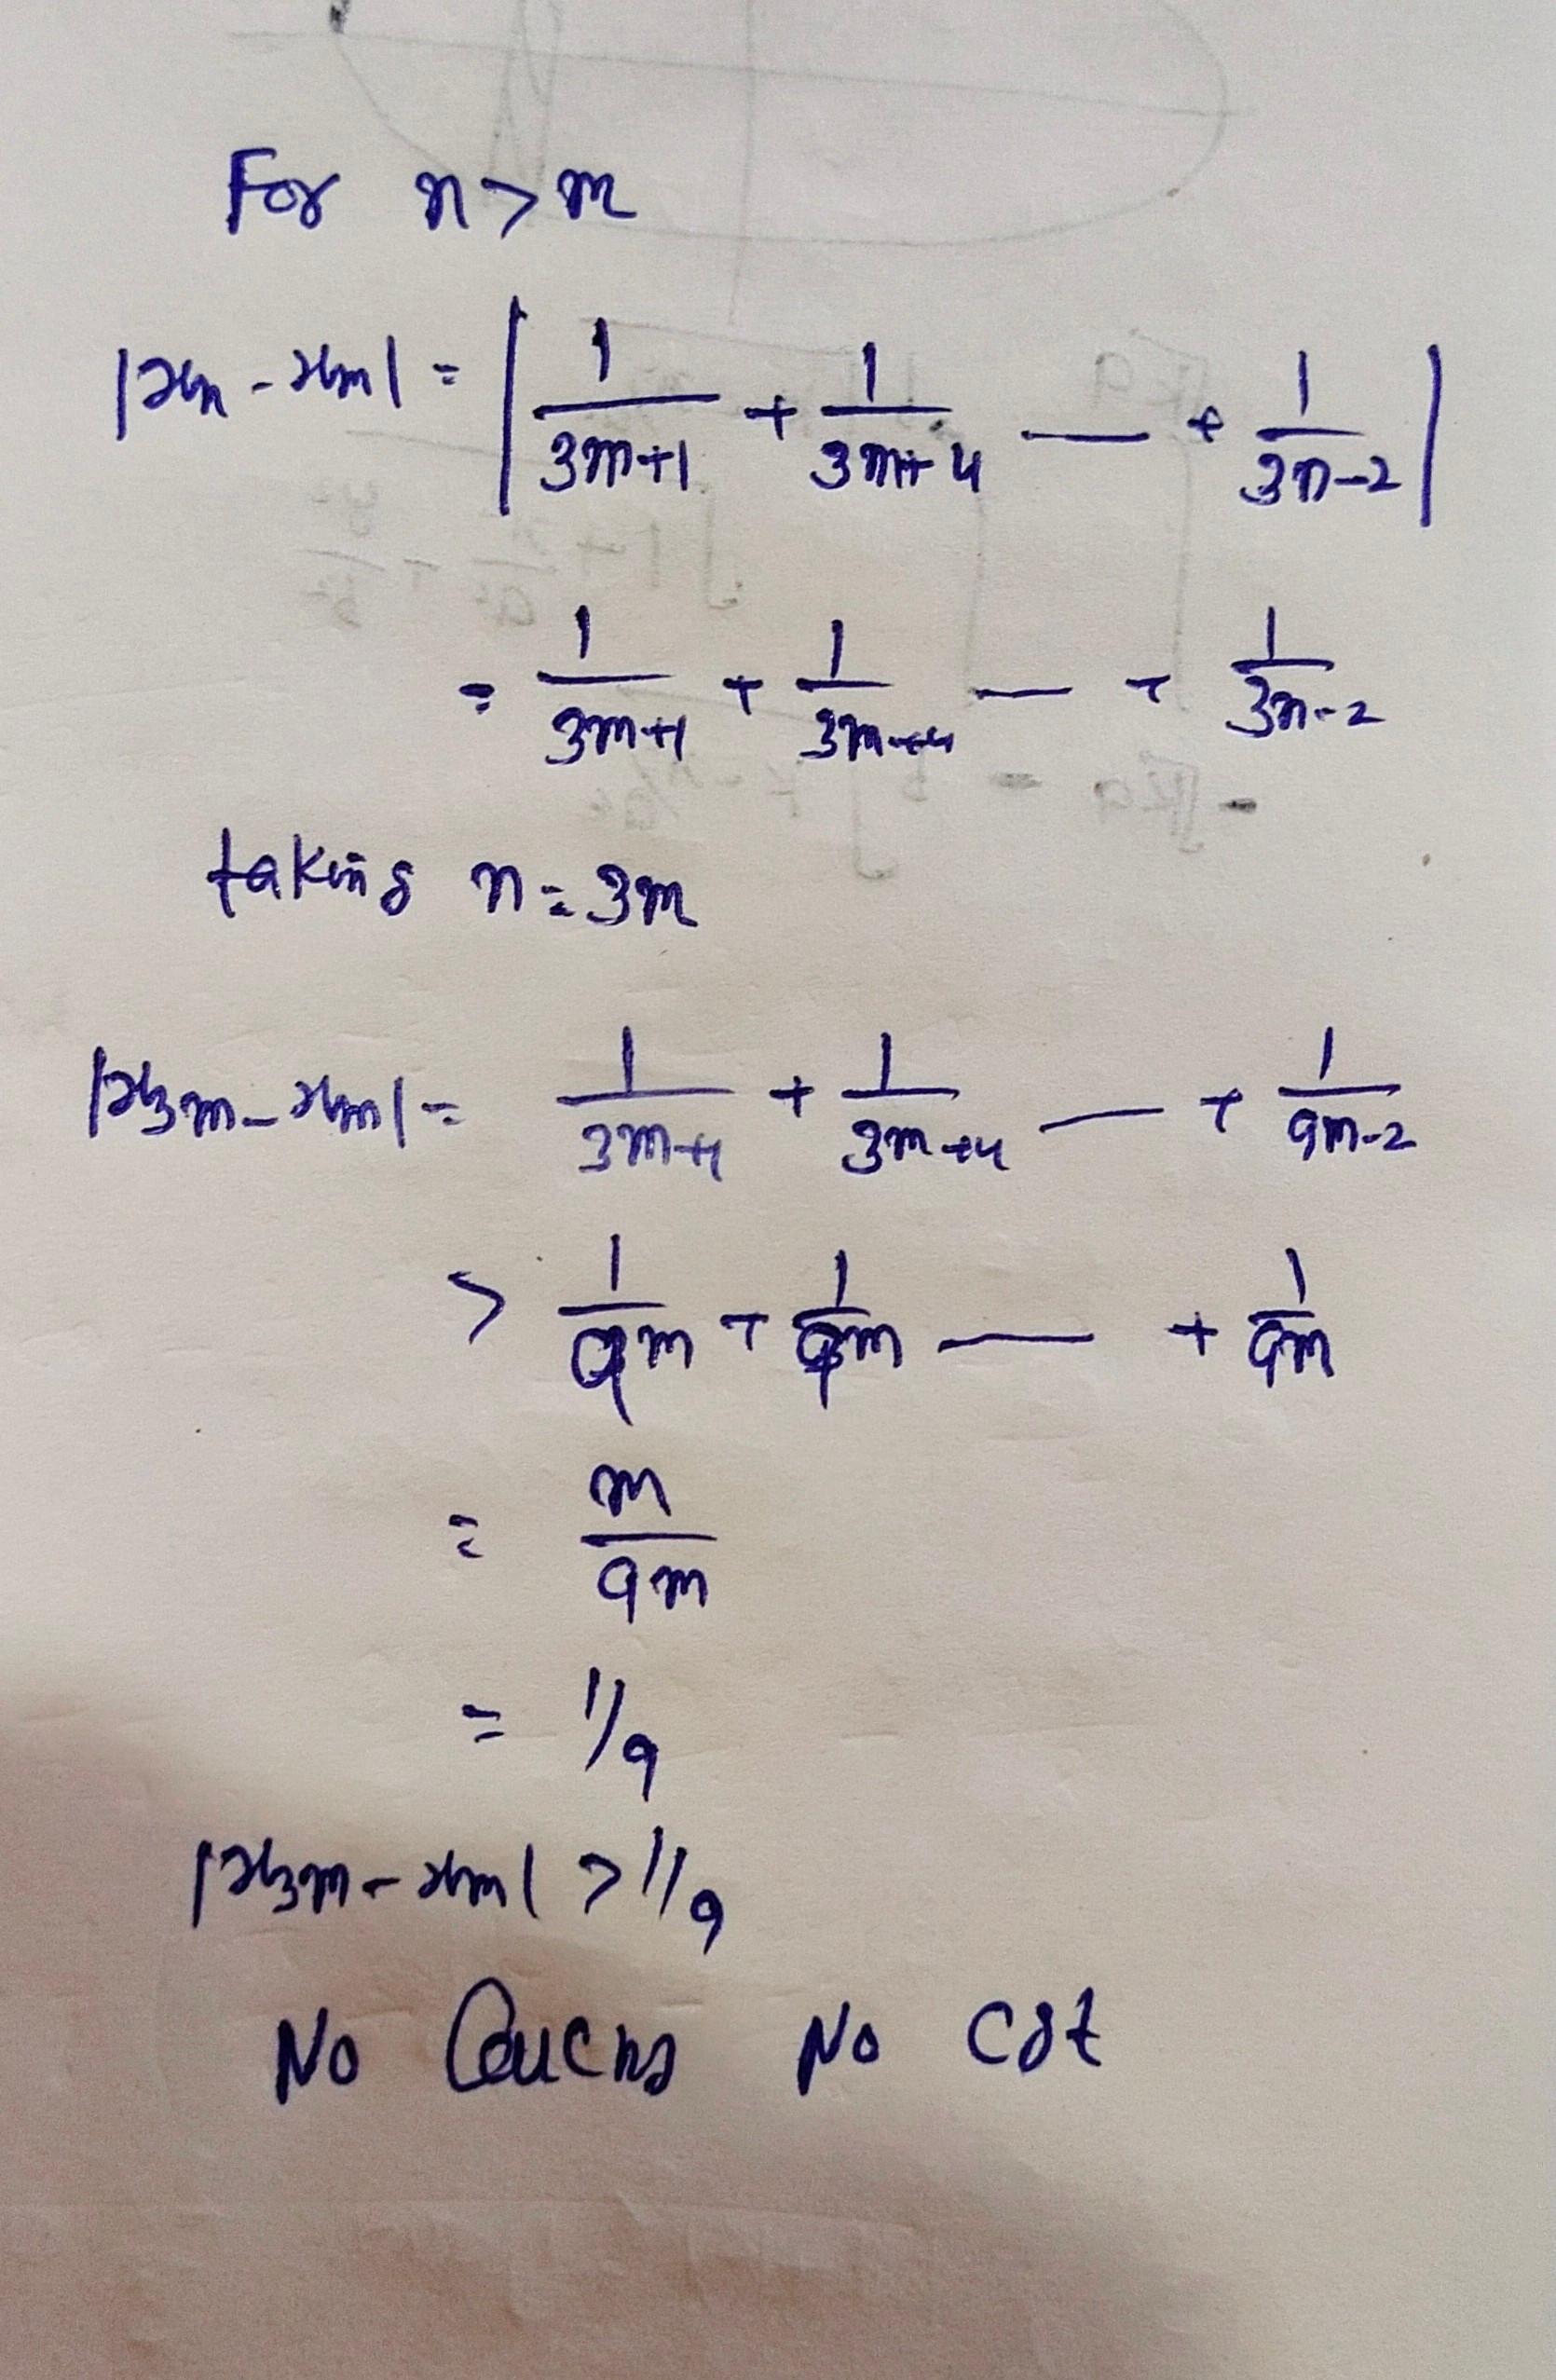 For n > m
|xn - xm| = | 1/3m+1 + 1/3m+4 — + 1/3n-2 |
= 1/3m+1 + 1/3m+4 — + 1/3n-2
taking n = 3m
|x3m - xm| = 1/3m+1 + 1/3m+4 — + 1/9m-2
> 1/9m + 1/9m — + 1/9m
= m/9m
= 1/9
|x3m - xm| > 1/9
No Cauchy No cgt